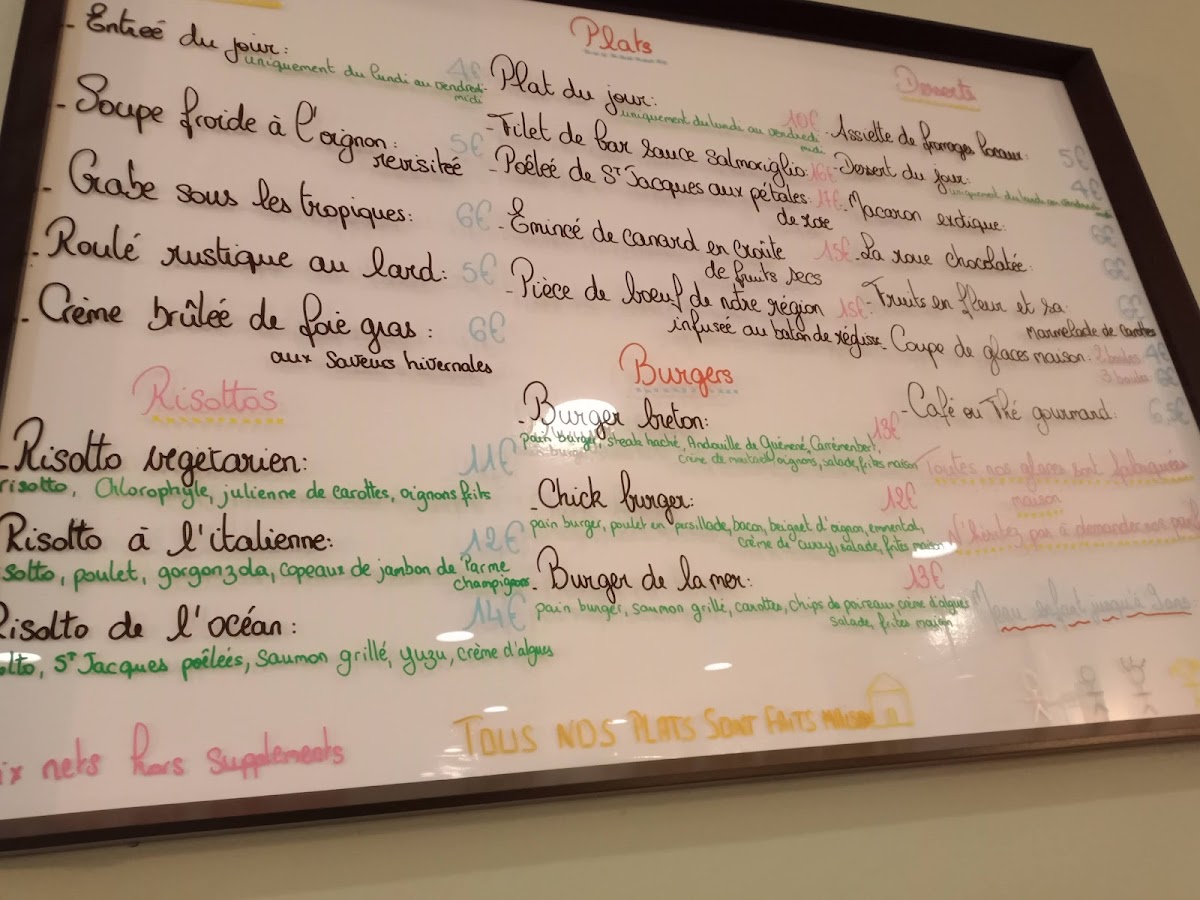 - Entrée du jour: 4€
uniquement du lundi au vendredi
midi
- Soupe froide à l'oignon: 5€
revisitée
- Crabe sous les tropiques: 6€
- Roulé rustique au lard: 5€
- Crème brûlée de foie gras: 6€
aux saveurs hivernales
Risottos
- Risotto vegetarien: 11€
risotto, Chlorophyle, julienne de carottes, oignons frits
Risotto à l'italienne: 12€
solto, poulet, gorgonzola, copeaux de jambon de Parme
champignons
Risolto de l'océan: 14€
olto, St Jacques poêlées, saumon grillé, yuzu, crème d'algues
ix nets hors supplements
Plats
Plat du jour: 10€
uniquement du lundi au vendredi
midi
- Filet de bar sauce Salmoriglio: 16€
- Poêlée de St Jacques aux pétales: 17€
de rose
- Emincé de canard en croûte 15€
de fruits secs
- Pièce de boeuf de notre région 15€
infusée au baton de réglisse
Burgers
- Burger breton: 13€
pain burger, steak haché, Andouille de Guémené, Carrémenbert,
crème de moutarde, oignons, salade, frites maison
- Chick burger: 12€
pain burger, poulet en persillade, bacon, beignet d'oignon, emmental,
crème de curry, salade, frites maison
- Burger de la mer: 13€
pain burger, saumon grillé, carottes, chips de poireaux, crème d'algues
salade, frites maison
TOUS NOS PLATS SONT FAITS MAISON
Desserts
- Assiette de fromages locaux: 5€
- Dessert du jour: 4€
uniquement du lundi au vendredi
- Macaron exotique: 6€
- La roue chocolatée: 6€
- Fruits en fleur et sa 6€
marmelade de carottes
- Coupe de glaces maison: 2 boules 4€
3 boules 6€
- Café ou Thé gourmand: 6,5€
Toutes nos glaces sont fabriquées
maison
N'hésitez pas à demander nos
Menu enfant jusqu'à